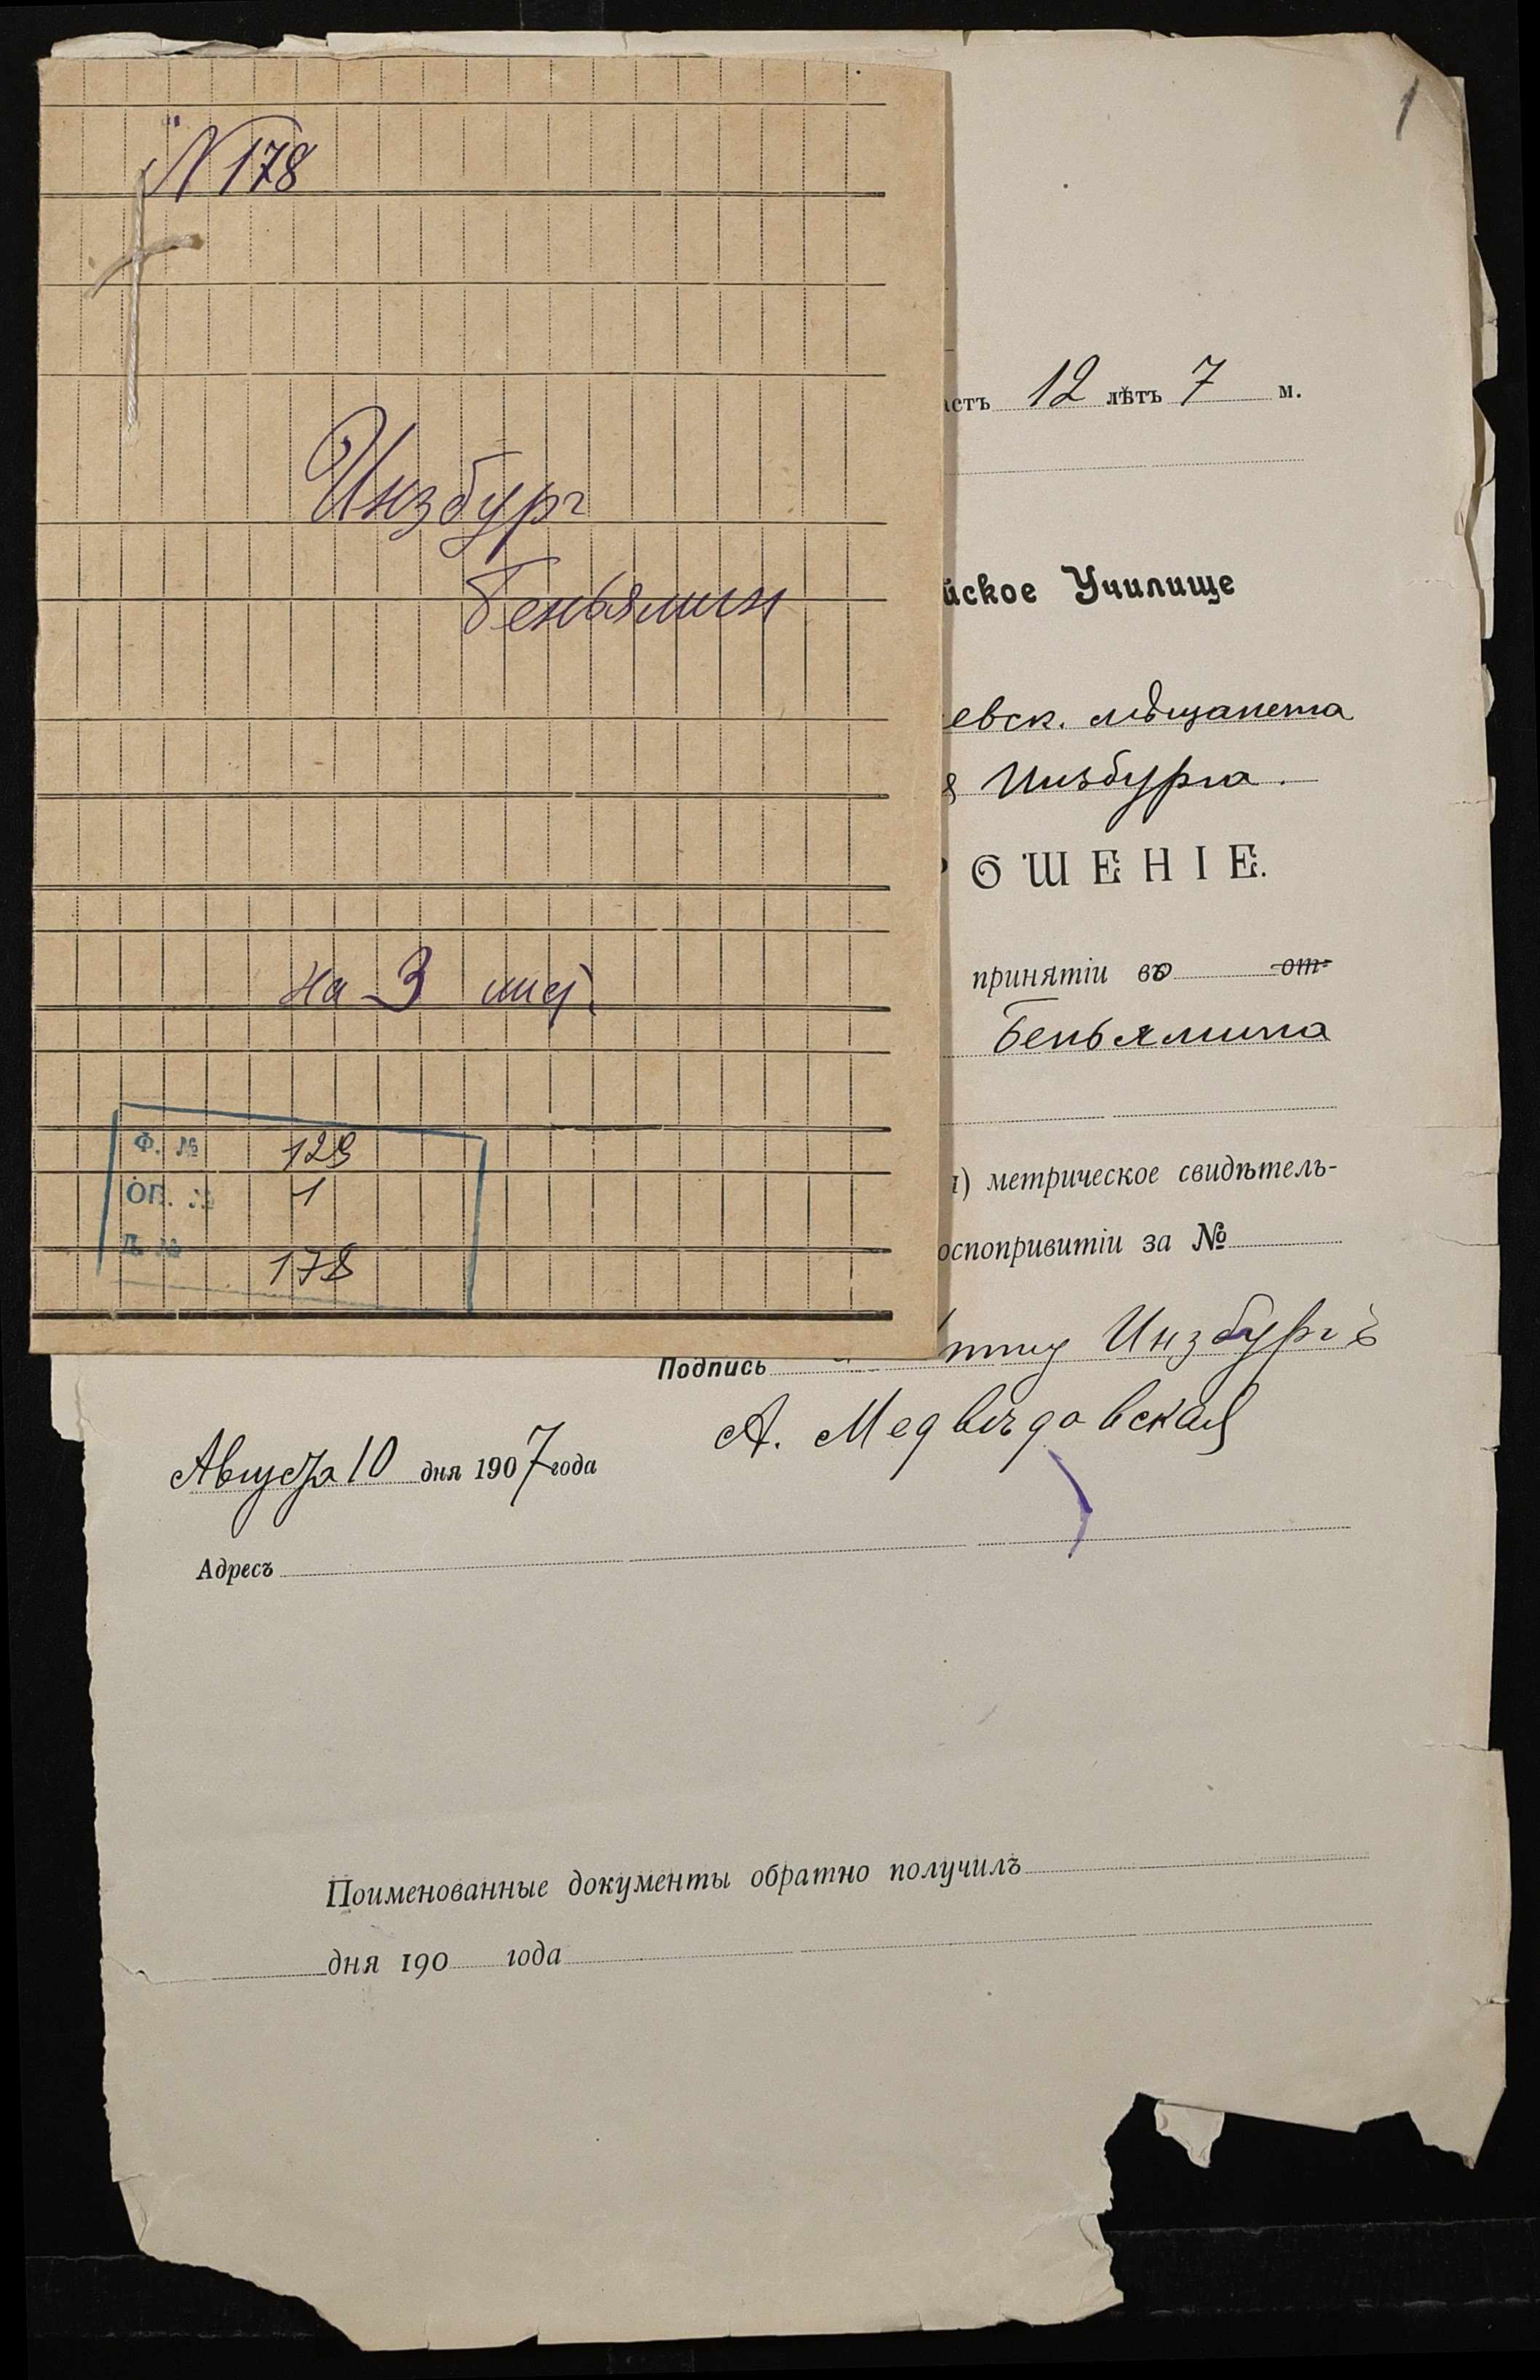 N 178
Инзбург
Беньямин
на 3 лист.
Ф. № 129
ОП. № 1
Д. № 178
1
астъ 12 лѣтъ 7 м.
йское Училище
евск. мѣщанина
Инзбурга.
ОШЕНІЕ.
принятіи въ от-
Беньямина
метрическое свидѣтель-
оспопривитіи за №
Подпись Инзбургъ
А. Медвѣдовская
Августа 10 дня 1907 года
Адресъ
Поименованные документы обратно получилъ
дня 190 года